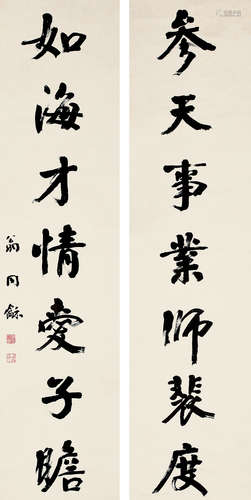 参天事業師裴度
如海才情愛子瞻
翁同龢